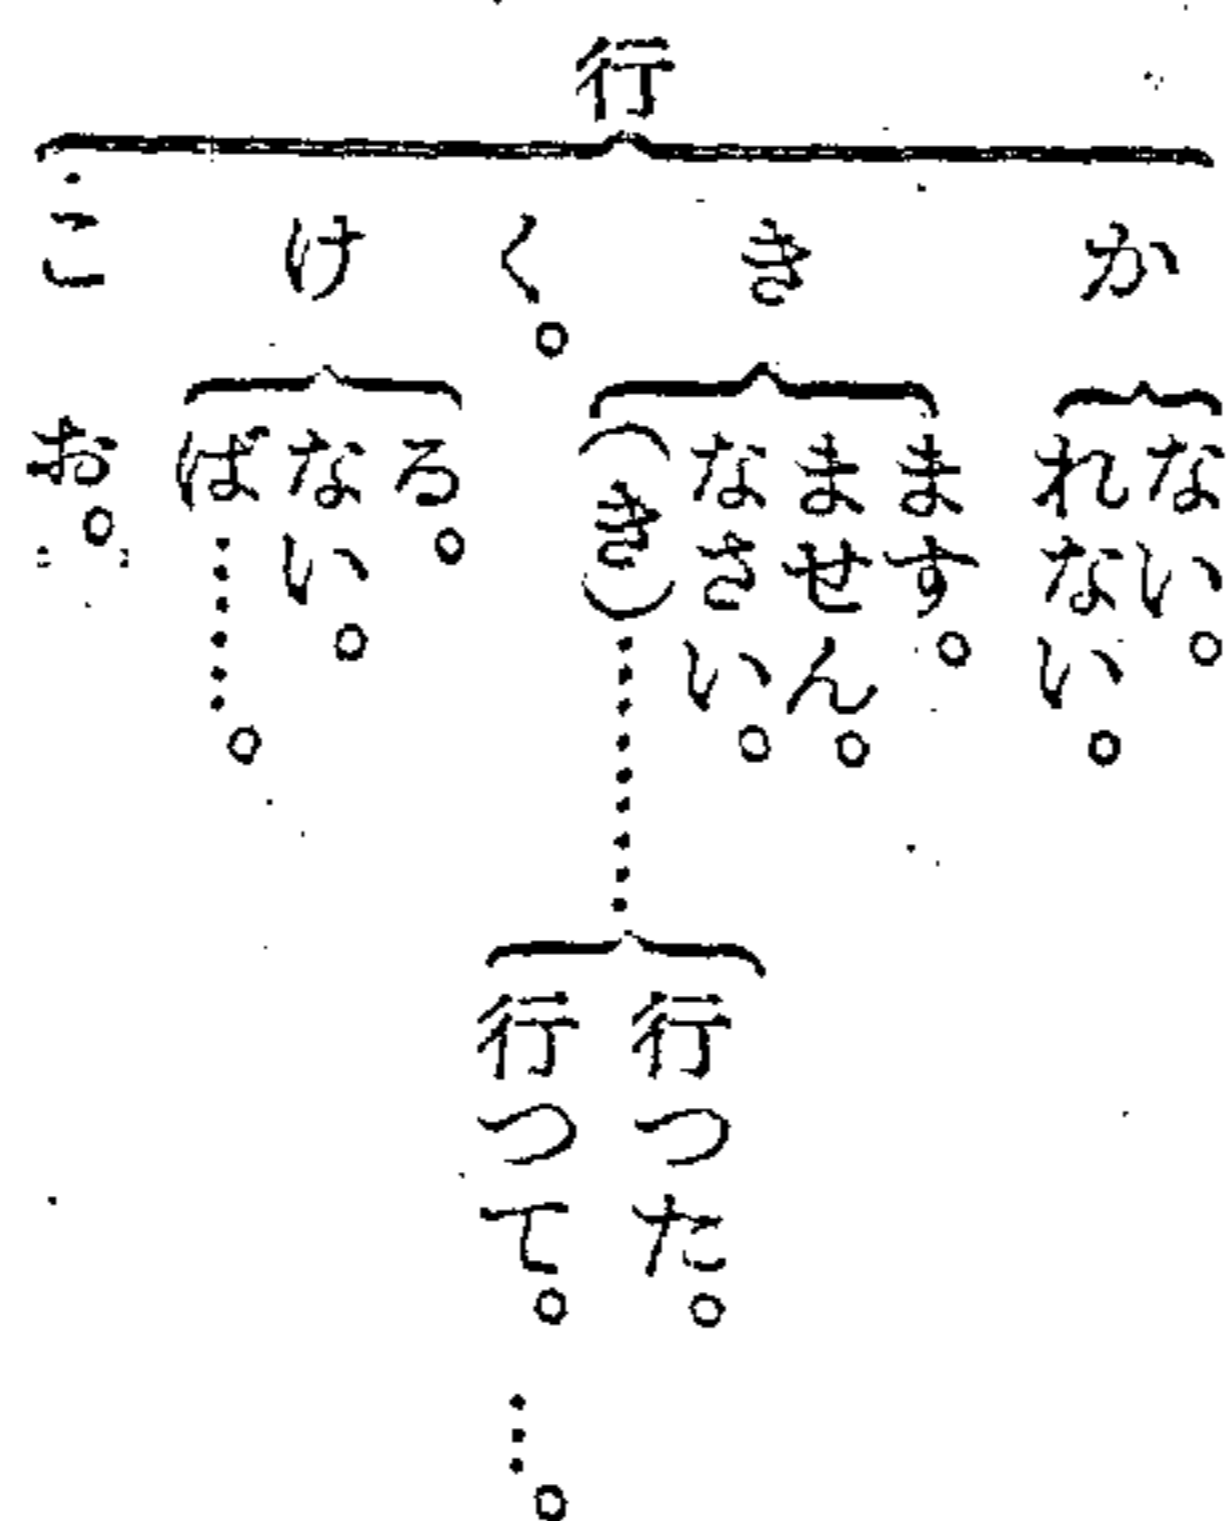 行
か
ない。
れない。
き
ます。
ません。
なさい。
(き)………
行つた。
行つて。…。
く。
け
る。
ない。
ば……。
こ
お。